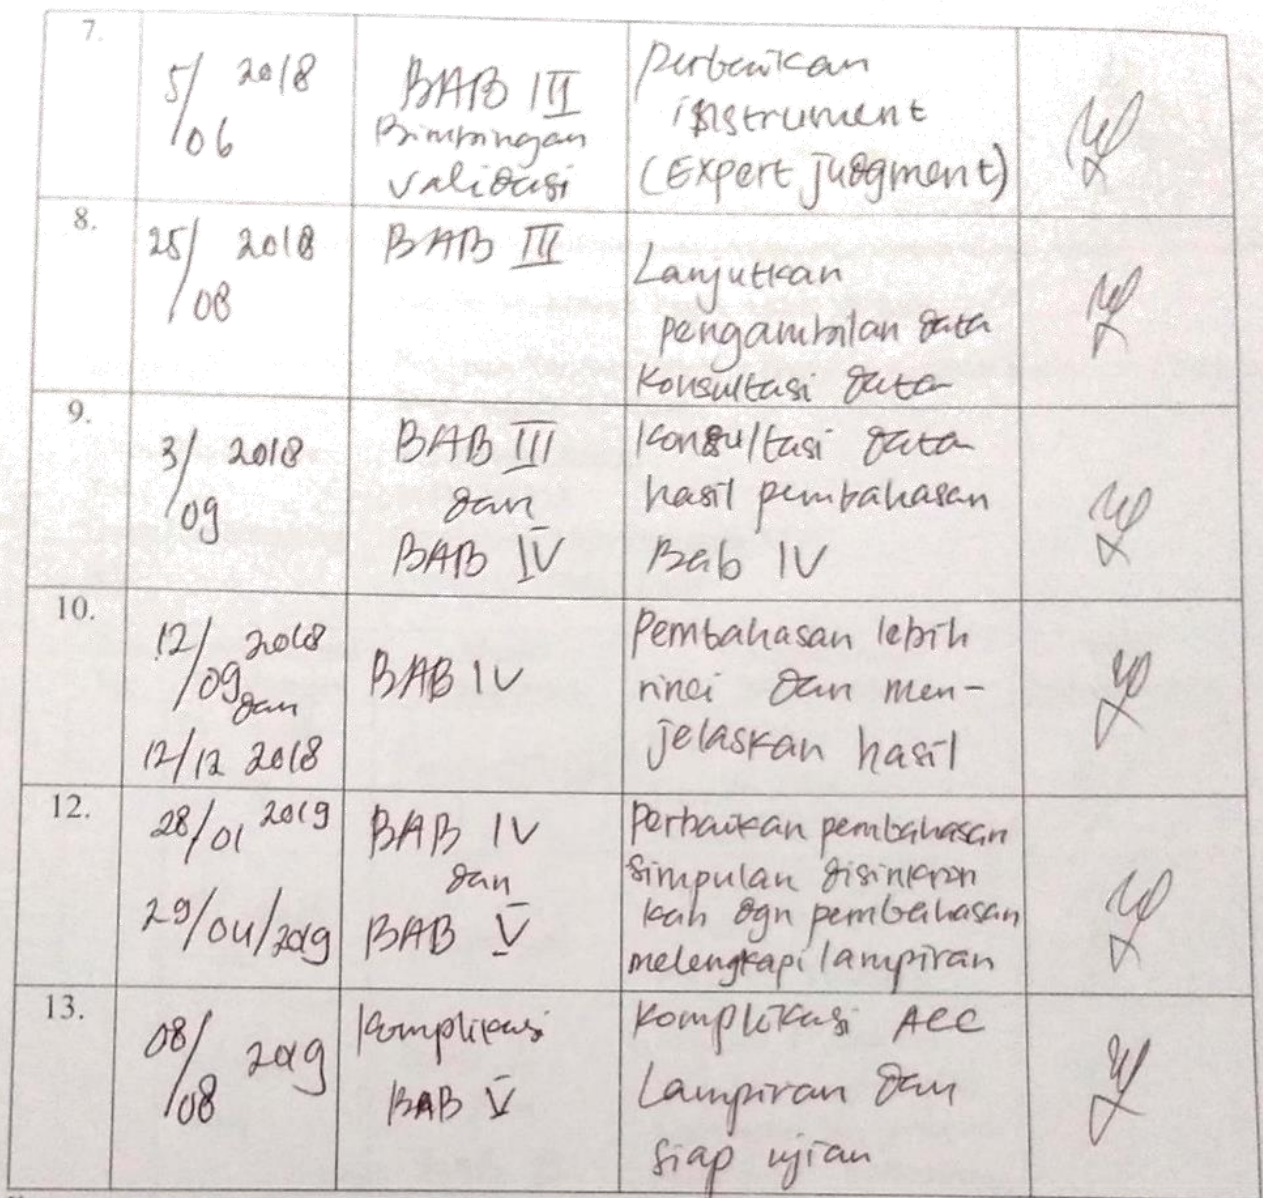 7.
5/06 2018
BAB III
Bimbingan
validasi
Perbaikan
instrument
(Expert judgment)
8.
25/08 2018
BAB III
Lanjutkan
pengambilan data
Konsultasi data
9.
3/09 2018
BAB III
dan
BAB IV
Konsultasi data
hasil pembahasan
Bab IV
10.
12/09 2018
dan
12/12 2018
BAB IV
Pembahasan lebih
rinci dan men-
jelaskan hasil
12.
28/01 2019
29/04/2019
BAB IV
dan
BAB V
Perbaikan pembahasan
simpulan disinkron
kan dgn pembahasan
melengkapi lampiran
13.
08/08 2019
Komplikasi
BAB V
Komplikasi ACC
Lampiran dan
siap ujian